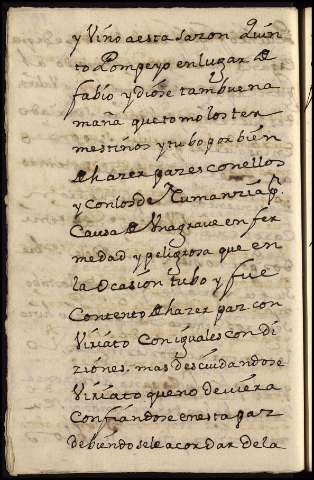 y vino a esta sazon Quin
to Pompeyo en lugar de
fabio y diose tam buena
maña que tomo los ter
mestinos y tubo por bien
de hazer pazes con ellos
y con los de Numanzia p.
Causa de Vna grave en fer
medad y peligrosa que en
la Ocasion tubo y fue
Contento de hazer paz con
Viriato Con iguales con di
ziones. mas descuidandose
Viriato que no deviera
Confiandose en esta paz
debiendosele acordar de la